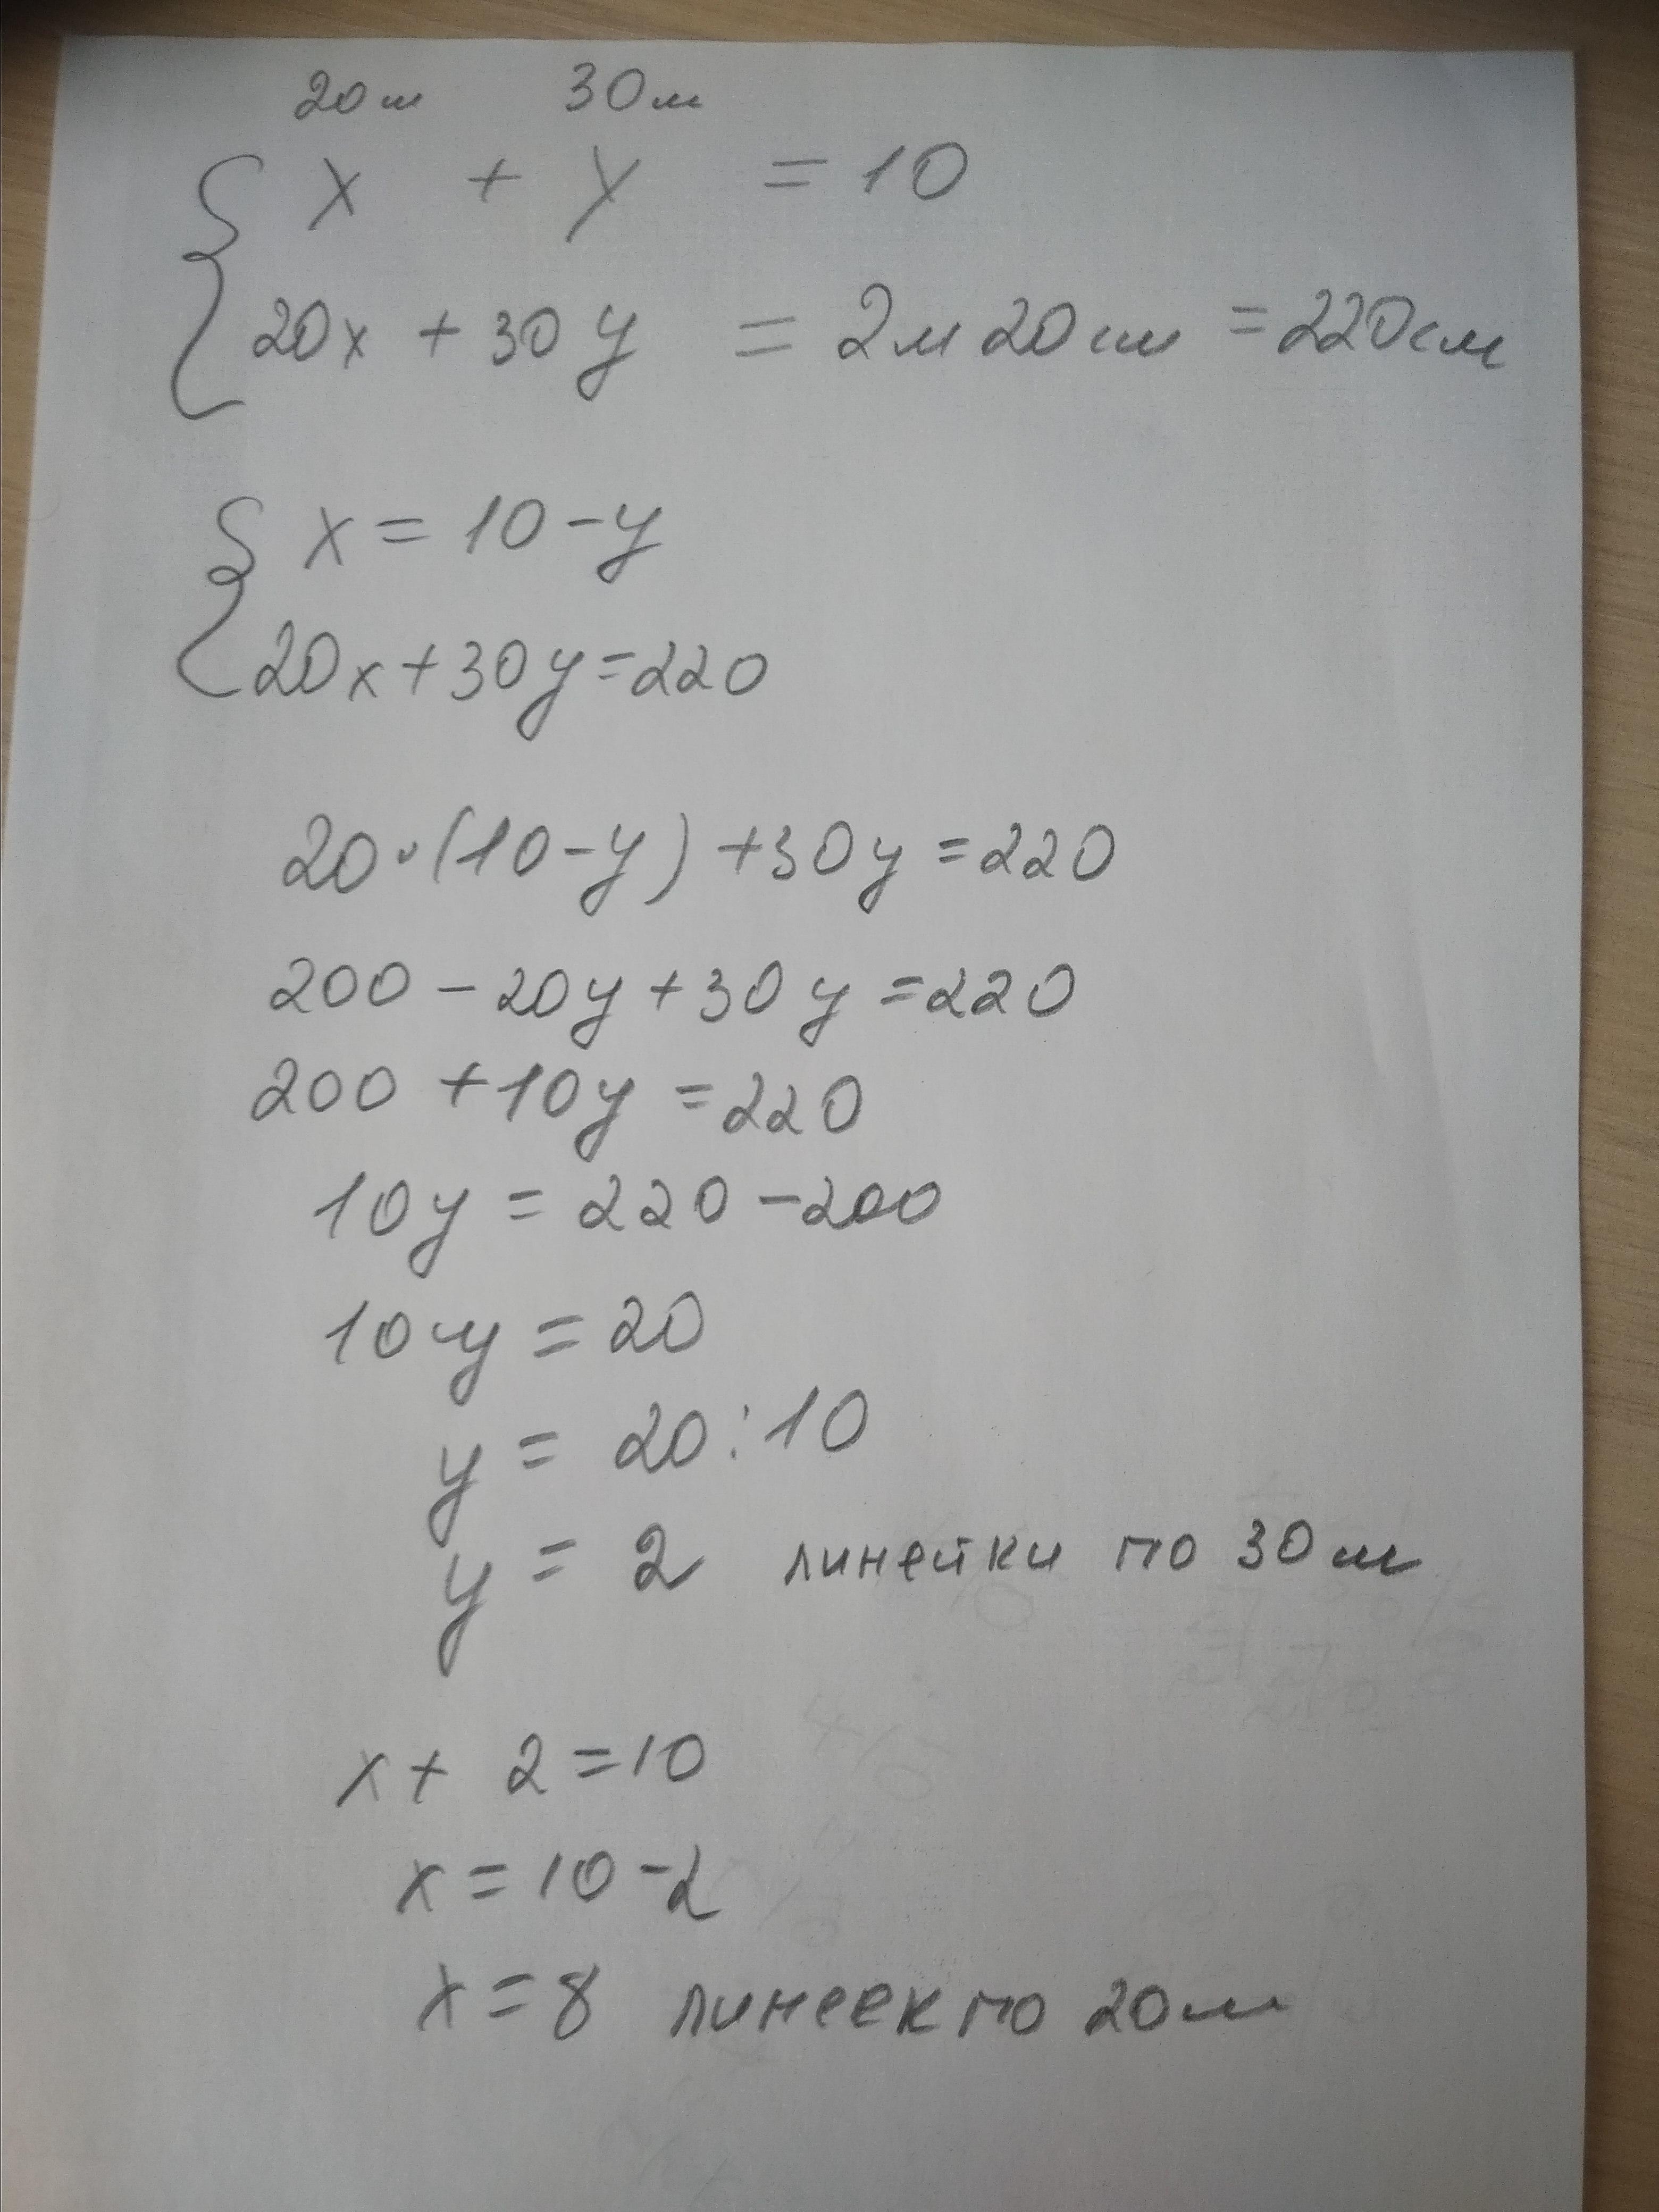 20см 30см
x + y = 10
20x + 30y = 2м 20см = 220см
x = 10 - y
20x + 30y = 220
20·(10 - y) + 30y = 220
200 - 20y + 30y = 220
200 + 10y = 220
10y = 220 - 200
10y = 20
y = 20 : 10
y = 2 линейки по 30см
x + 2 = 10
x = 10 - 2
x = 8 линеек по 20см